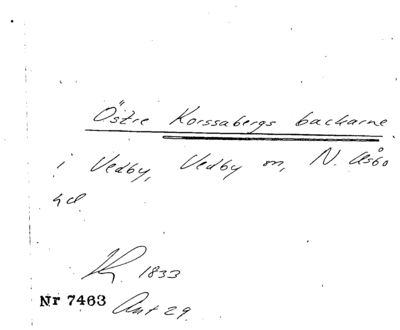 Östre Korssabergs backarne
i Vedby, Vedby sn, N. Åsbo
hd
1833
Nr 7463 Ant 29